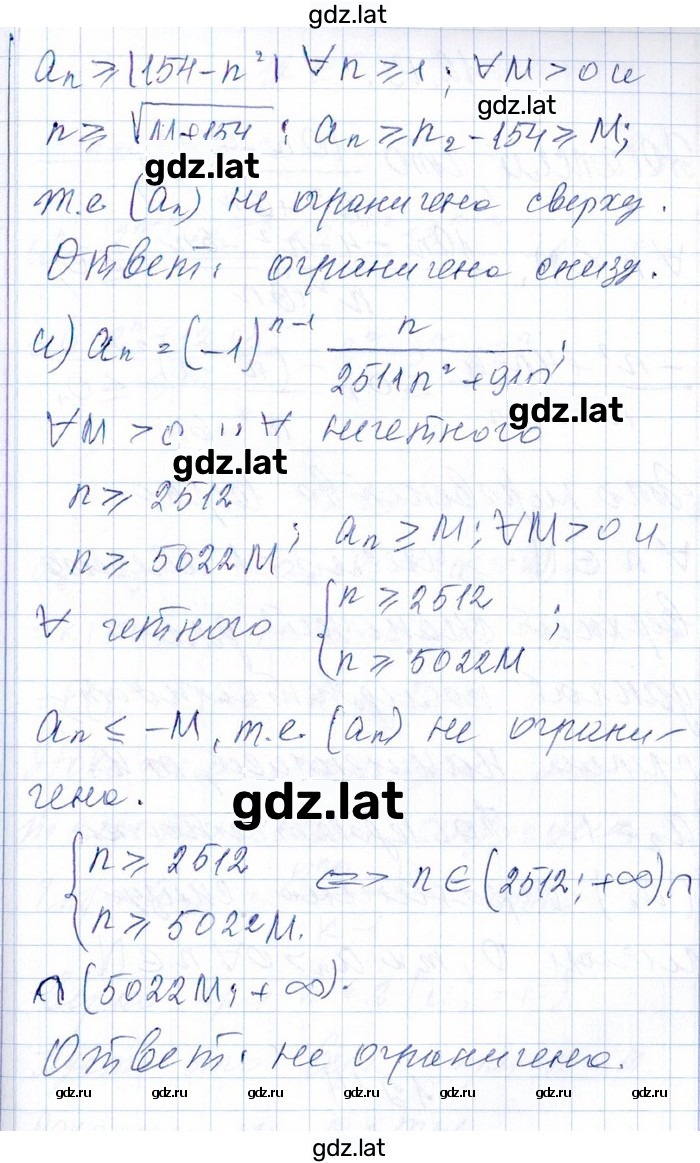 gdz.lat
aₙ ≥ |154-n²| ∀n ≥ 1; ∀M > 0 и
gdz.lat
n ≥ √M+154 : aₙ ≥ n₂ - 154 ≥ M;
gdz.lat
т.е. (aₙ) не ограничена сверху.
Ответ: ограничена снизу.
и) aₙ = (-1)ⁿ⁻¹ n / 2511n² + ;
gdz.lat
∀M > 0 и ∀ нечетного
gdz.lat
n ≥ 2512
n ≥ 5022M ; aₙ ≥ M; ∀M > 0 и
∀ четного { n ≥ 2512 ;
n ≥ 5022M
aₙ ≤ -M, т.е. (aₙ) не ограни-
чена.
gdz.lat
{ n ≥ 2512 <=> n ∈ (2512; +∞) ∩
n ≥ 5022M.
∩ (5022M; +∞).
Ответ: не ограничена.
gdz.ru gdz.ru gdz.ru gdz.ru gdz.ru gdz.ru gdz.ru
gdz.lat